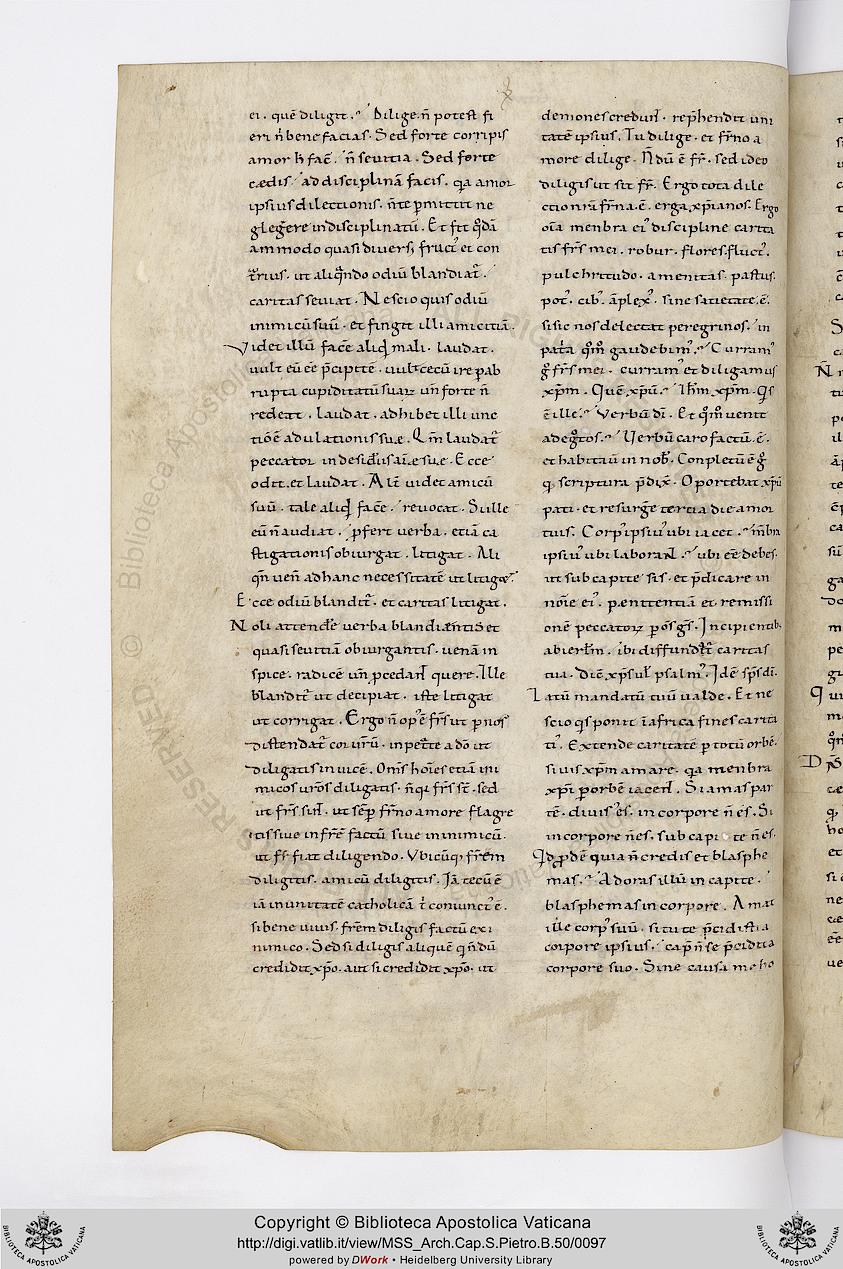 ei. quē diligit. Dilige. n̄ potest fi
eri n̄ bene facias. Sed forte corripis
amor h̄ fac̄. n̄ seuitia. Sed forte
cædis ad disciplinā facis. qa amor
ipsius dilectionis. n̄ te p̄mittit ne
glegere indisciplinatū. Et fit q̄dā
ammodo quasi diuers; fruct' et con
t̄rius. ut aliq̄ndo odiū blandiat̄.
caritas seuiat. Nescio quis odiū
inimicū suū. et fingit illi amicitiā.
Videt illū facē aliq̄ mali. laudat.
uult eū eē p̄cipitē. uult cecū ire p̄ ab
rupta cupiditatū suaꝝ un̄ forte n̄
redeat. laudat. adhibet illi unc
tionē adulationis suę. Qm̄ laudat̄
peccator in desideriis aīe suę. Ecce
odit. et laudat. Alt̄ uidet amicū
suū. tale aliq̄ facē. reuocat. Si ille
eū n̄ audiat. p̄fert uerba. etiā ca
stigationis obiurgat. litigat. Ali
qn̄ uen̄ ad hanc necessitatē ut litiget̄.
Ecce odiū blandit̄. et caritas litigat.
Noli attendē uerba blandientis et
quasi seuitiā obiurgantis. uenā in
spice. radicē un̄ p̄cedant quere. Ille
blandit̄ ut decipiat. iste litigat
ut corrigat. Ergo n̄ op' ē frs̄ ut p̄ nos
distendat̄ cor ur̄m̄. inpetrate a dō ut
diligatis inuicē. Om̄s hoīes etiā ini
micos ur̄os diligatis. n̄ qi fr̄s st̄. sed
ut fr̄s sint. ut semp̄ fr̄no amore flagre
tis siue in fr̄ē factū siue in inimicū.
ut fr̄ fiat diligendo. Vbicūq; fr̄em
diligitis. amicū diligitis. Iā tecū ē
iā in unitatē catholicā t̄ coniunct' ē.
si bene uiuis. fr̄em diligis factū ex i
nimico. Sed si diligis aliquē q n̄dū
credidit xp̄o. aut si credidit xp̄o. ut
demones credunt. rep̄hendit uni
tatē ipsius. Tu dilige. et fr̄no a
more dilige. N̄dū ē fr̄. sed ideo
diligis ut sit fr̄. Ergo tota dile
ctio nr̄a fr̄na. ē. erga xp̄ianos. Ergo
om̄a menbra ei' discipline carita
tis frs̄ mei. robur. flores. fluct'.
pulchritudo. amenitas. pastus.
pot'. cib'. āplex'. sine satietate. ē.
si sic nos delectat peregrinos. in
pat̄a qm̄ gaudebim'. Curram'
ḡ frs̄ mei. curram' et diligamus
xp̄m. Quē xp̄ū. Ihm̄ xp̄m. Qs
ē ille. Verbū dī. Et qm̄ uenit
ad eḡtos. Uerbū caro factū. ē.
et habitauit in nob̄. Conpletū ē ḡ
q; scriptura p̄dix̄. Oportebat xp̄ū
pati. et resurgē tertia die a mor
tuis. Corp' ipsius ubi iacet. m̄bra
ipsius ubi laborant. ubi eē debes.
ut sub capite sis. et p̄dicare in
noīe ei'. penitentiā et remissi
onē peccatoꝝ p̄ os gs̄. Incipientib;
ab ierl̄m. ibi diffundit̄ caritas
tua. Dicit xp̄s ul̄ psalm'. Idē sps̄ dī.
Latū mandatū tuū ualde. Et ne
scio qs ponit ī africa fines carita
ti. Extende caritatē p totū orbē.
si uis xp̄m amare. qa menbra
xp̄i p̄ orbē iacent. Si amas par
tē. diuis' es. in corpore n̄ es. Si
in corpore n̄ es. sub capi te n̄ es.
Qd p̄dē quia n̄ credis et blasphe
mas. Adoras illū in capite.
blasphemas in corpore. Amat
ille corp' suū. si tu te p̄cidisti a
corpore ipsius. cap' n̄ se p̄cidit a
corpore suo. Sine causa me ho
Copyright © Biblioteca Apostolica Vaticana
http://digi.vatlib.it/view/MSS_Arch.Cap.S.Pietro.B.50/0097
powered by DWork • Heidelberg University Library